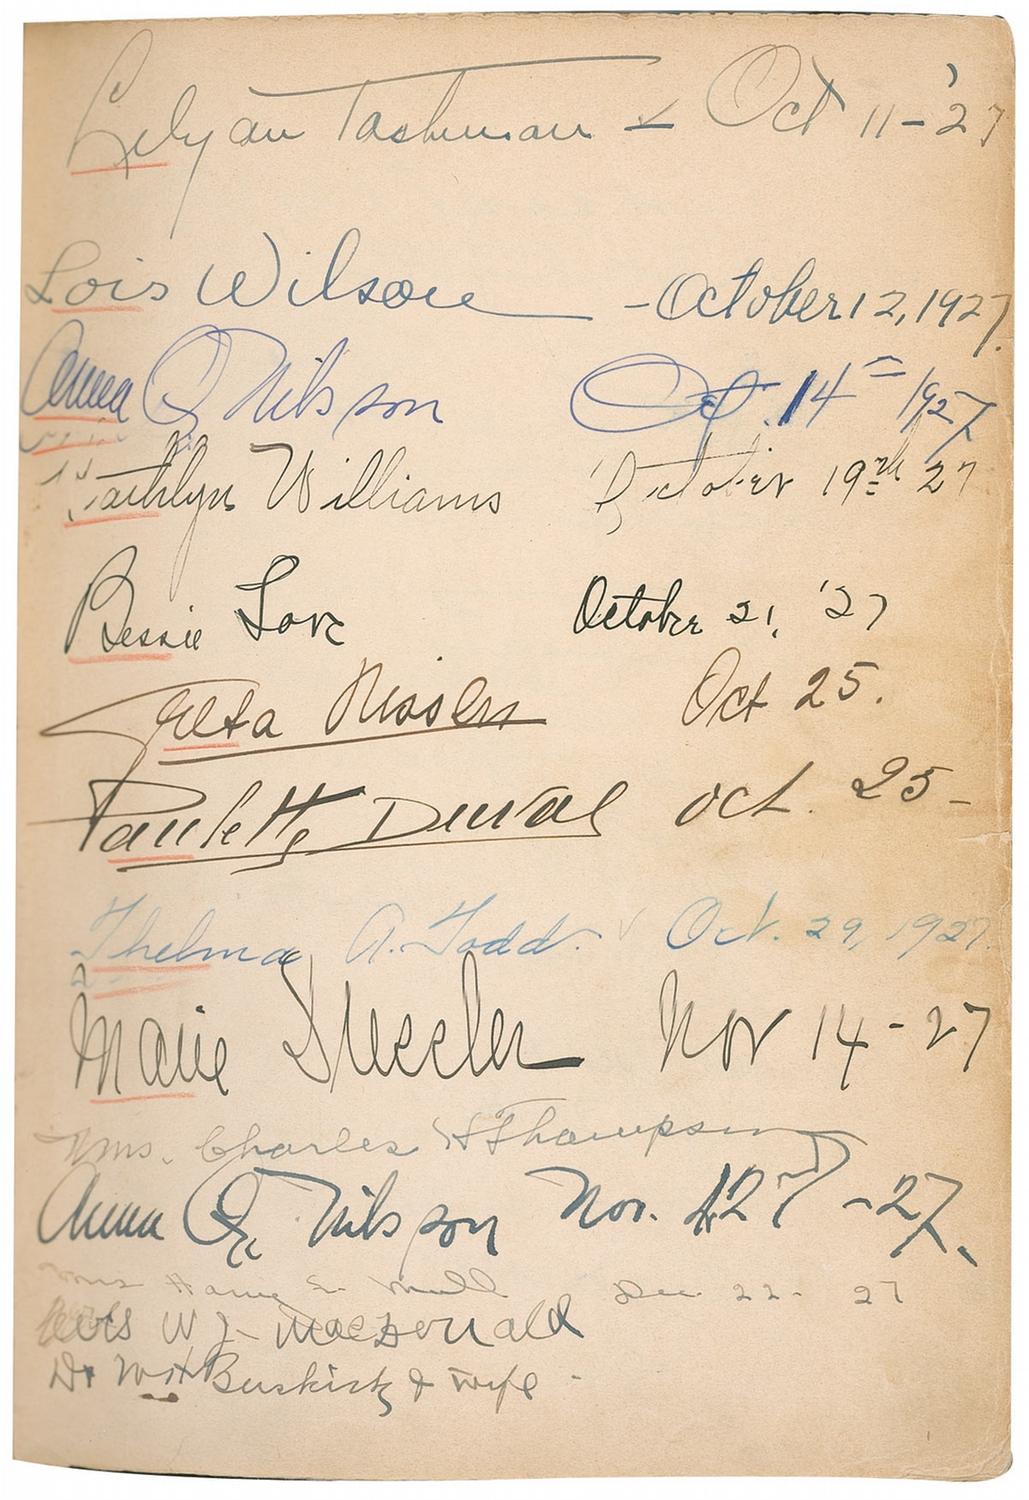 Lilyan Tashman — Oct 11-'27
Lois Wilson - October 12, 1927.
Anna Q Nilsson Oct. 14th 1927
Kathlyn Williams October 19th 27
Bessie Love October 21, '27
Greta Nissen Oct 25.
Paulette Duval oct. 25-
Thelma A. Todd. Oct. 29, 1927.
Marie Dressler Nov 14-27
Mrs. Charles H Thompson
Anna Q. Nilsson Nov. -27.
Mrs Harry E. Mull Dec 22. 27
W J. MacDonald
Dr Wm Buskirk & wife